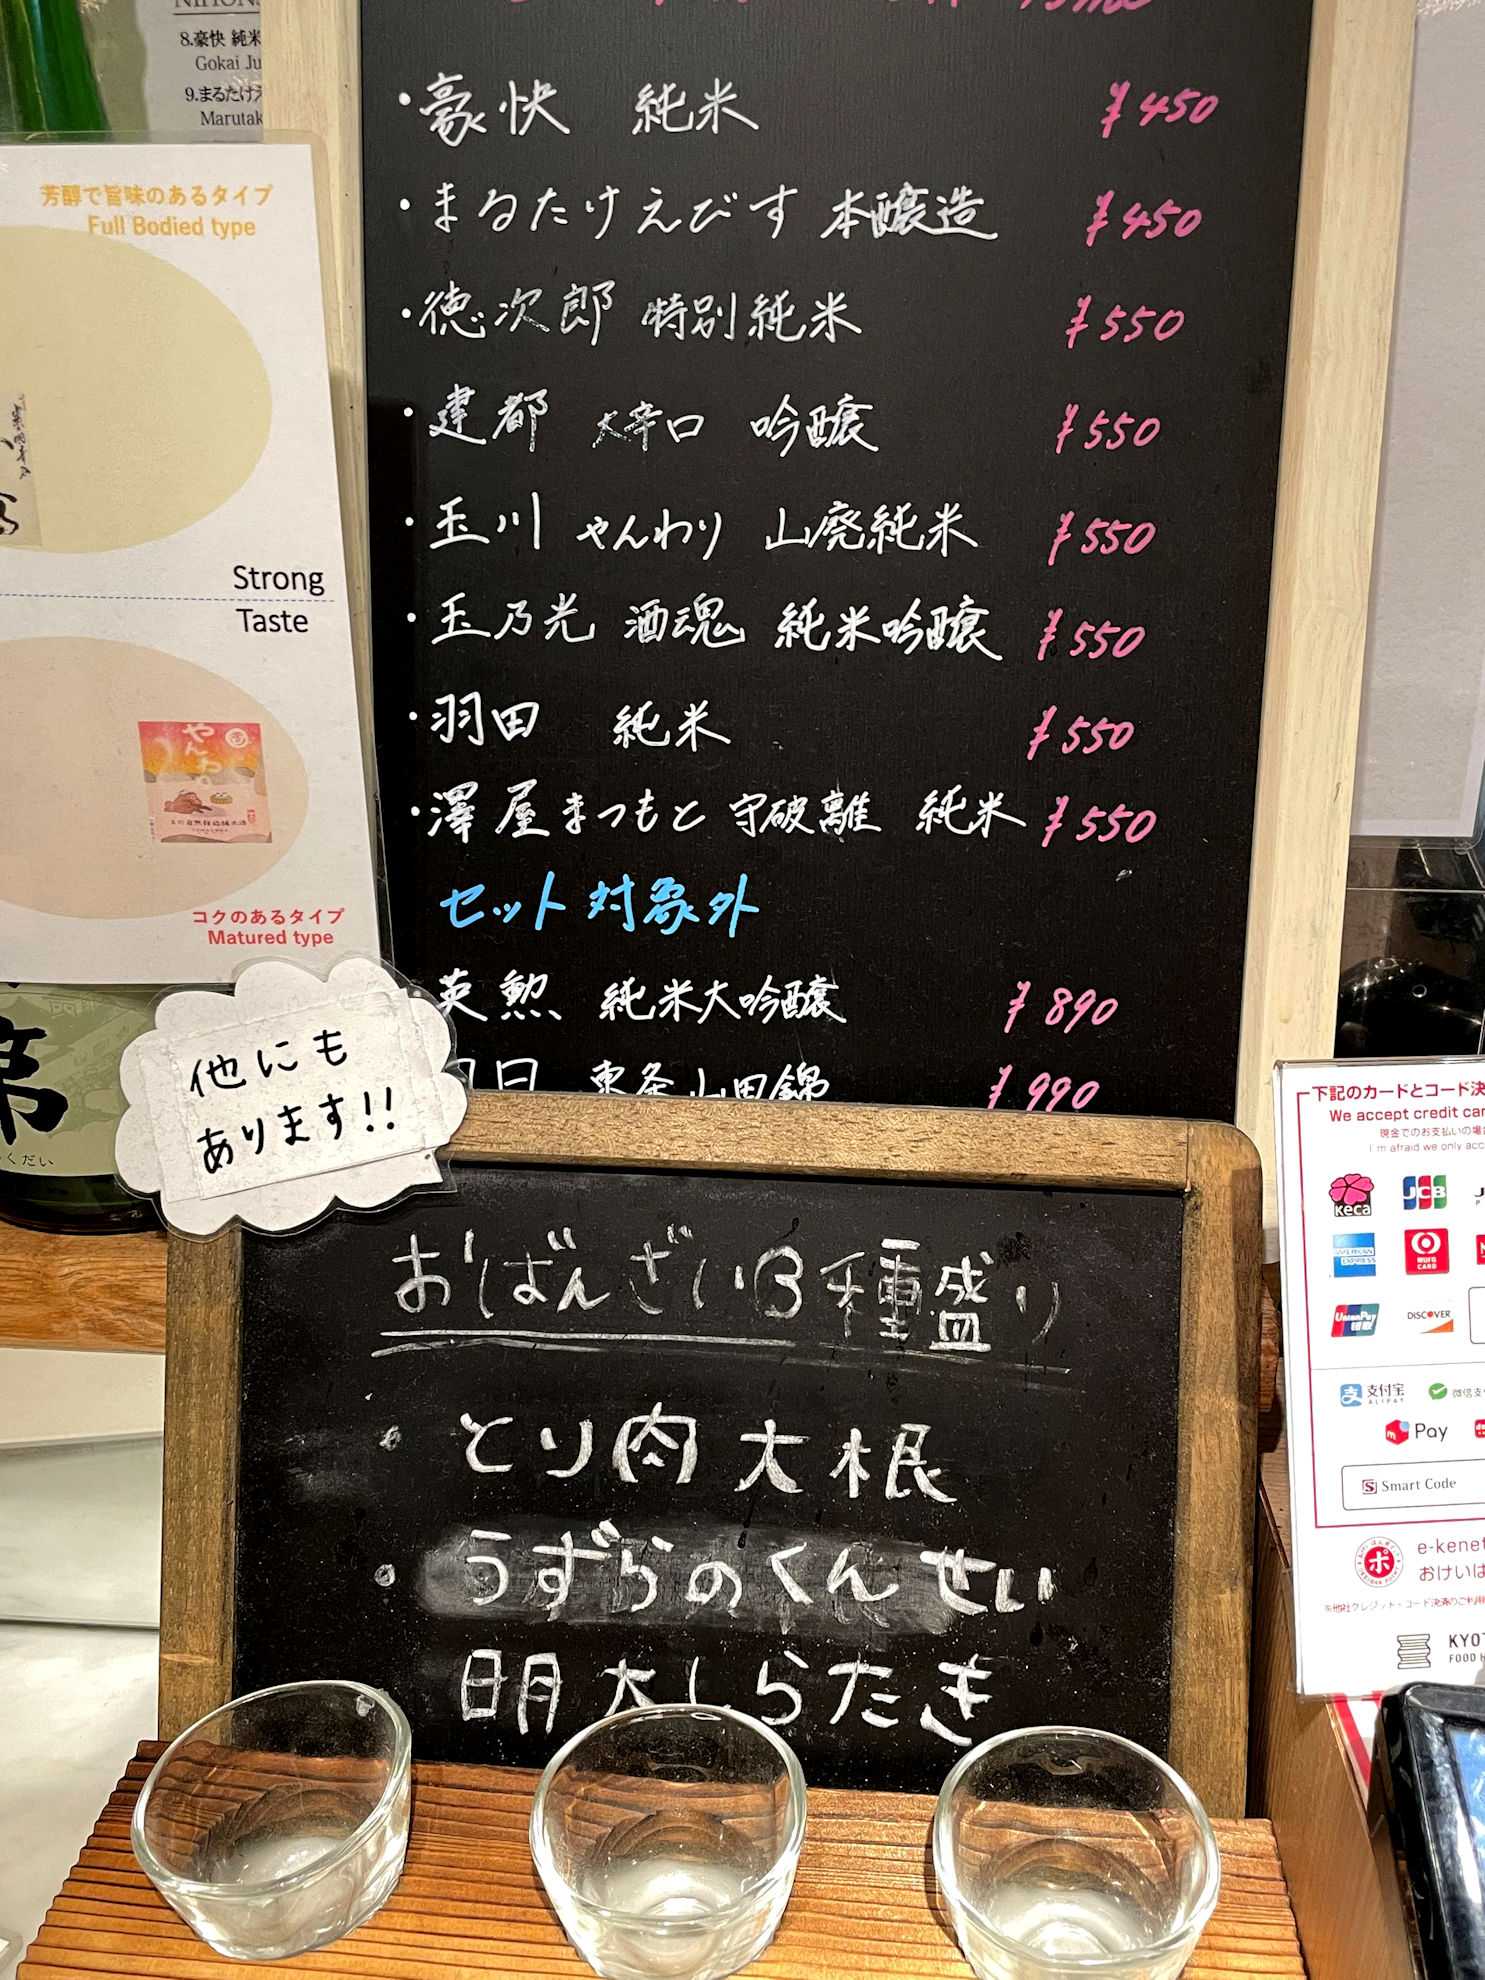 8.豪快 純米
Gokai Ju
9.まるたけえ
Marutak
芳醇で旨味のあるタイプ
Full Bodied type
Strong
Taste
やんわり
コクのあるタイプ
Matured type
くだい
・豪快 純米 ¥450
・まるたけえびす 本醸造 ¥450
・徳次郎 特別純米 ¥550
・建都 大辛口 吟醸 ¥550
・玉川 やんわり 山廃純米 ¥550
・玉乃光 酒魂 純米吟醸 ¥550
・羽田 純米 ¥550
・澤屋まつもと 守破離 純米 ¥550
セット対象外
英勲 純米大吟醸 ¥890
東条山田錦 ¥990
他にも
あります!!
おばんざい3種盛り
・とり肉大根
・うずらのくんせい
明太しらたき
下記のカードとコード決
We accept credit car
現金でのお支払いの場合
I'm afraid we only acc
Keca
JCB
AMERICAN EXPRESS
MUFG CARD
UnionPay
银联
DISCOVER
支付宝
ALIPAY
微信支
Pay
Smart Code
ポ
e-kenet
おけいは
※他社クレジット・コード決済のご利用
KYOT
FOOD H